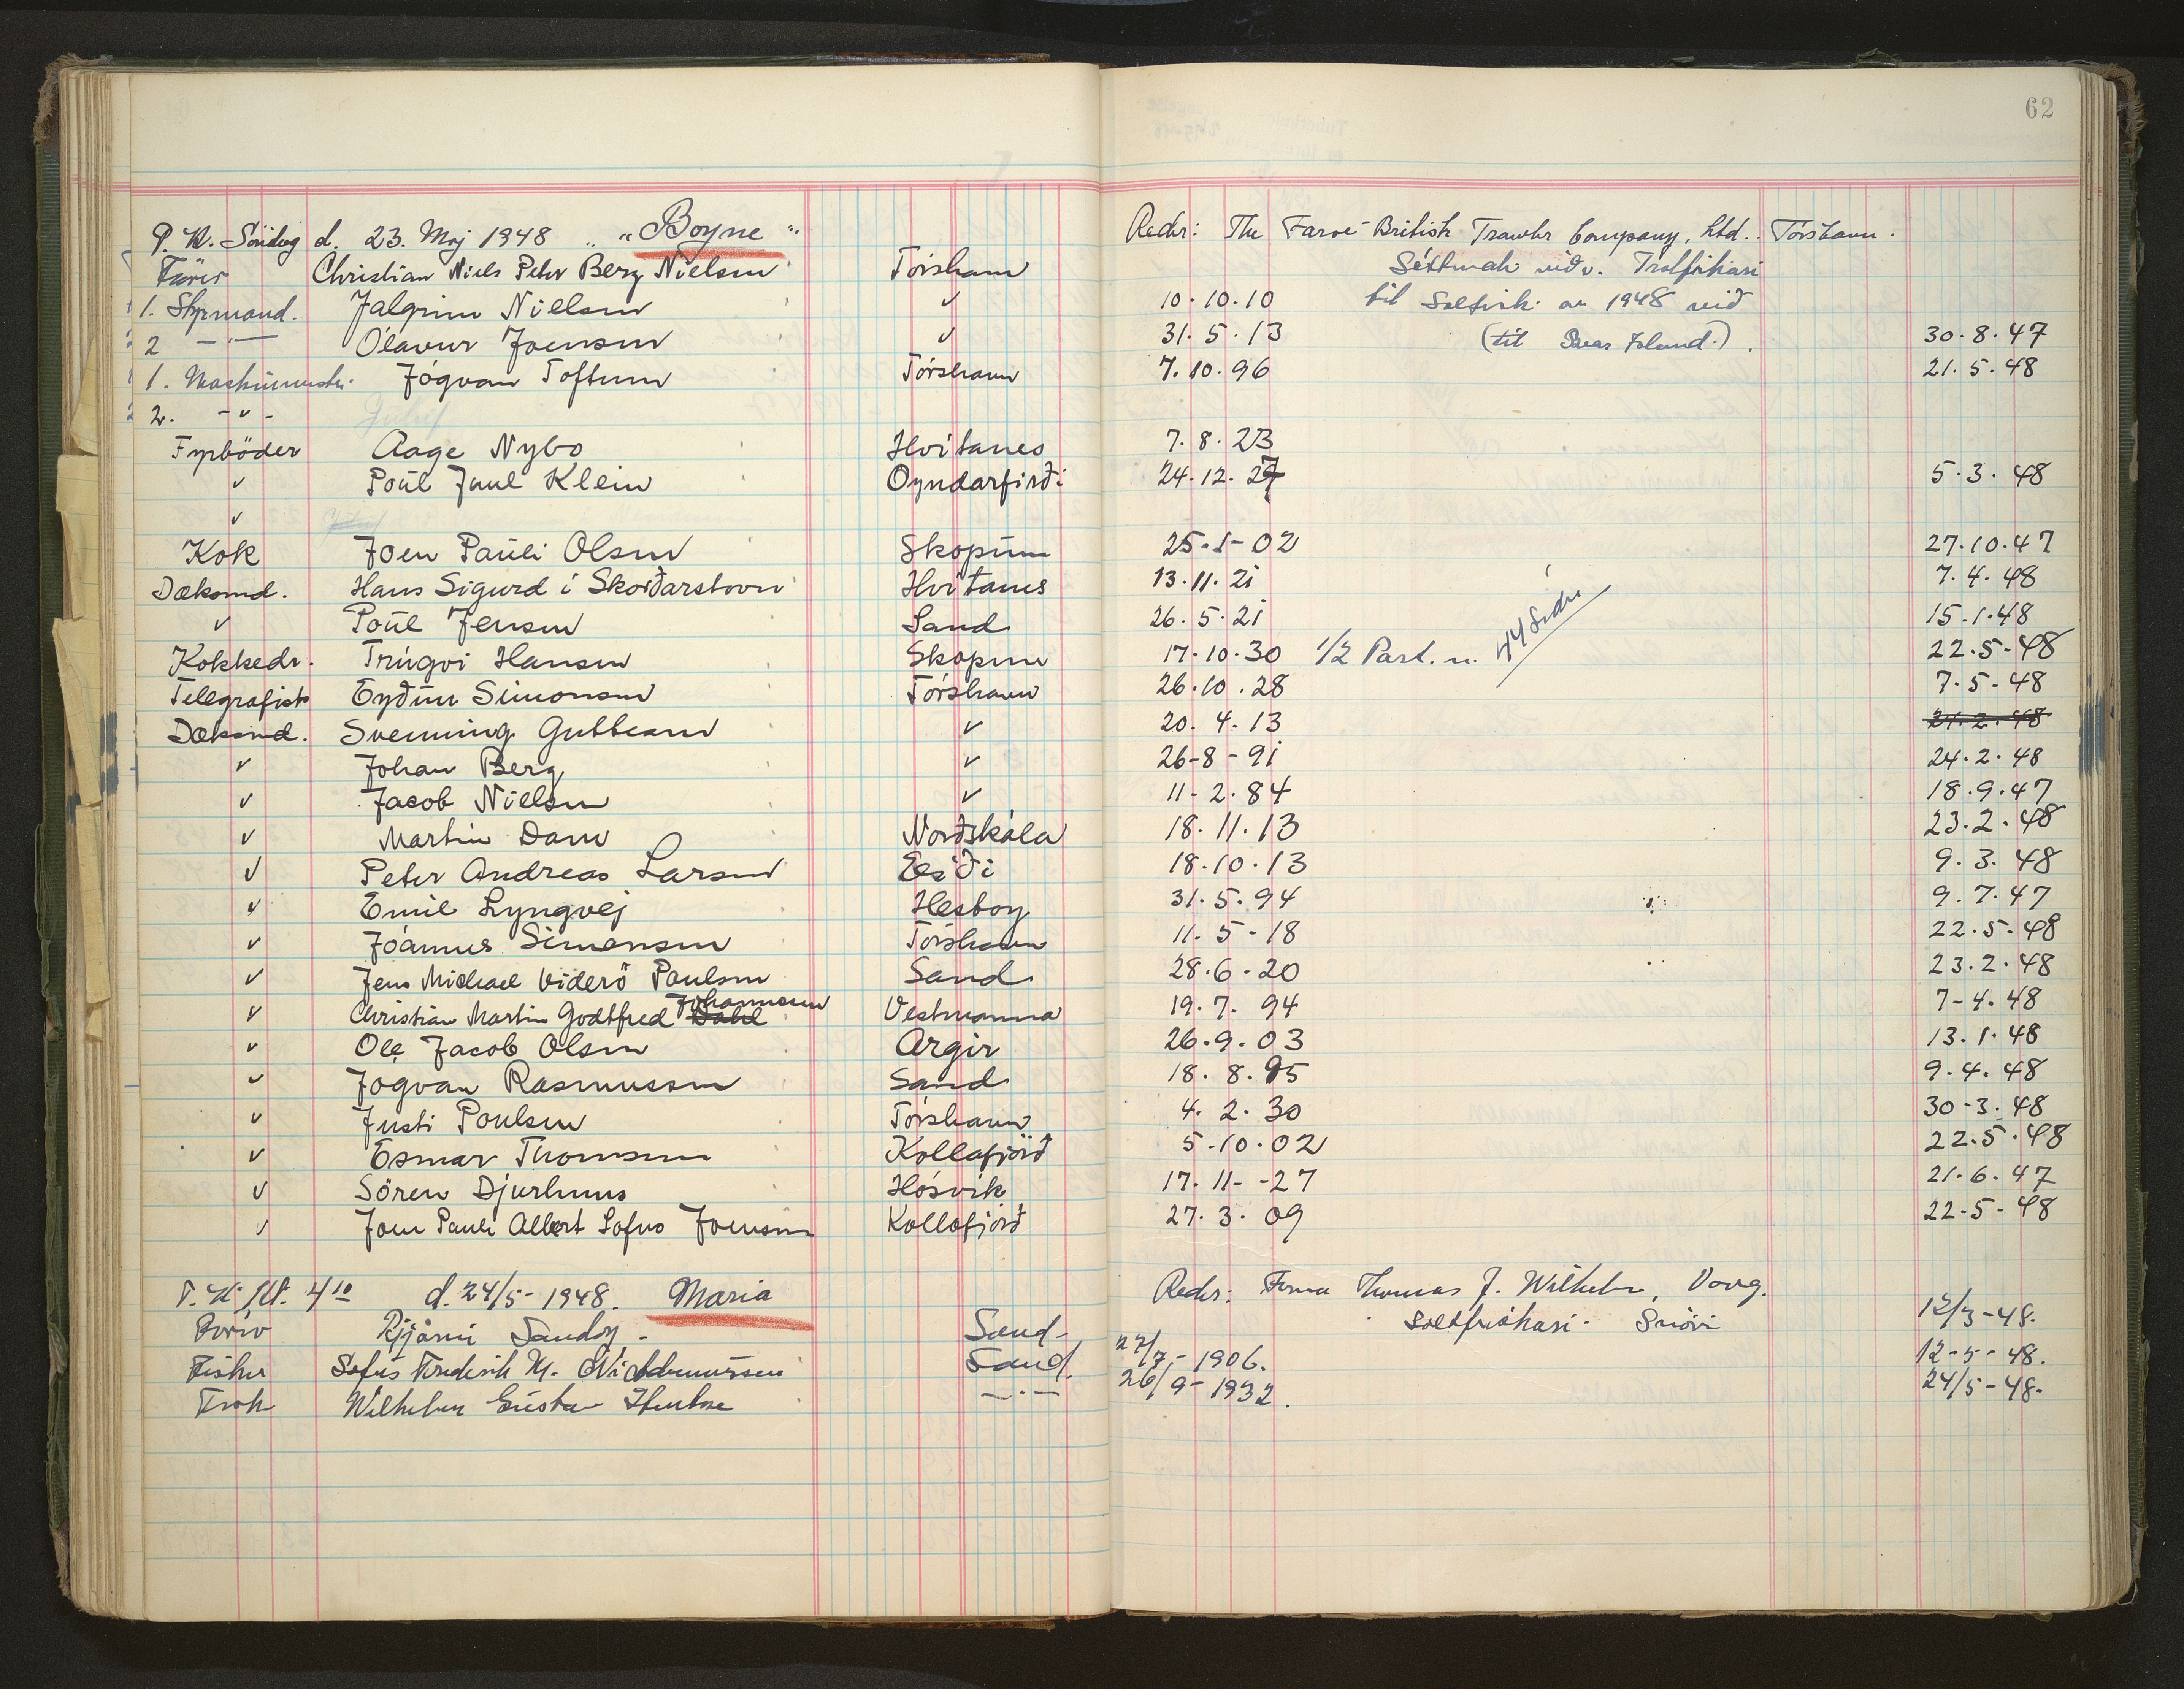 62
P. K. Söndag d. 23. Maj 1948 „ "Boyne" Reder: The Faroe British Trawler Company, Ltd. Tórshavn.
Förer Christian Niels Peter Berg Nielsen Tórshavn
1. Styrmand. Jalgrim Nielsen ✓ 10-10-10 til Saltfisk. 1948 við
2 -"- Ólavur Joensen ✓ 31.5.13 (til Bear Island.). 30.8.47
1. Maskinmester. Jógvan Toftum Tórshavn 7.10.96 21.5.48
2. -✓-
Fyrböder Aage Nybo Hvítanes 7.8.23
✓ Poul Juul Klein Oyndarfirði 24.12.27 5.3.48
✓
Kok Joen Pauli Olsen Skopun 25-1-02 27.10.47
Dæksmd. Hans Sigurd í Skorðarstovu Hvítanes 13.11.21 7.4.48
✓ Poul Jensen Sand 26.5.21 15.1.48
Kokkedr. Trúgvi Hansen Skopun 17.10.30 1/2 Part. 22.5.48
Telegrafist Eyðun Simonsen Tórshavn 26.10.28 7.5.48
Dæksmd. Svenning Guttesen ✓ 20.4.13 21.2.48
✓ Johan Berg ✓ 26-8-91 24.2.48
✓ Jacob Nielsen ✓ 11-2.84 18.9.47
✓ Martin Dam Norðskála 18.11.13 23.2.48
✓ Peter Andreas Larsen Eiði 18.10.13 9.3.48
✓ Emil Lyngvej Hesboy 31.5.94 9.7.47
✓ Jóannes Simonsen Tórshavn 11-5-18 22.5.48
✓ Jens Michael Viderö Poulsen Sand 28.6-20 23.2.48
✓ Christian Martin Godtfred Dahl Johannesen Vestmanna 19.7.94 7-4.48
✓ Ole Jacob Olsen Argir 26.9.03 13.1.48
✓ Jogvan Rasmussen Sand 18.8.95 9.4.48
✓ Justi Poulsen Tórshavn 4.2.30 30-3.48
✓ Esmar Thomsen Kollafjörð 5.10.02 22.5.48
✓ Sören Djurhuus Hósvík 17.11-27 21.6.47
✓ Joen Pauli Albert Sofus Joensen Kollafjörð 27.3.09 22-5-48
d. 24/5-1948. Maria Reder: Firma Thomas J. Wilhelm, Vaag.
Sandoy Sand 12/3-48.
Fisker Sofus Frederik M. Sand 27/7-1906. 12-5-48.
Wilhelm Gustav -"- 26/9-1932. 24/5-48.